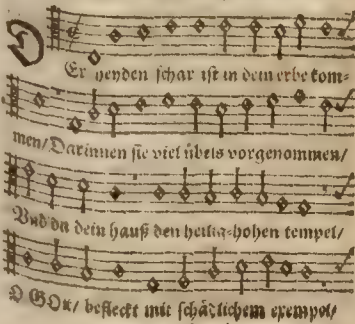 DEr heyden schar ist in dein erbe kom=
men/Darinnen sie viel übels vorgenommen/
Vnd da dein hauß den heilig-hohen tempel/
O GOtt/ befleckt mit schädlichem exempel/